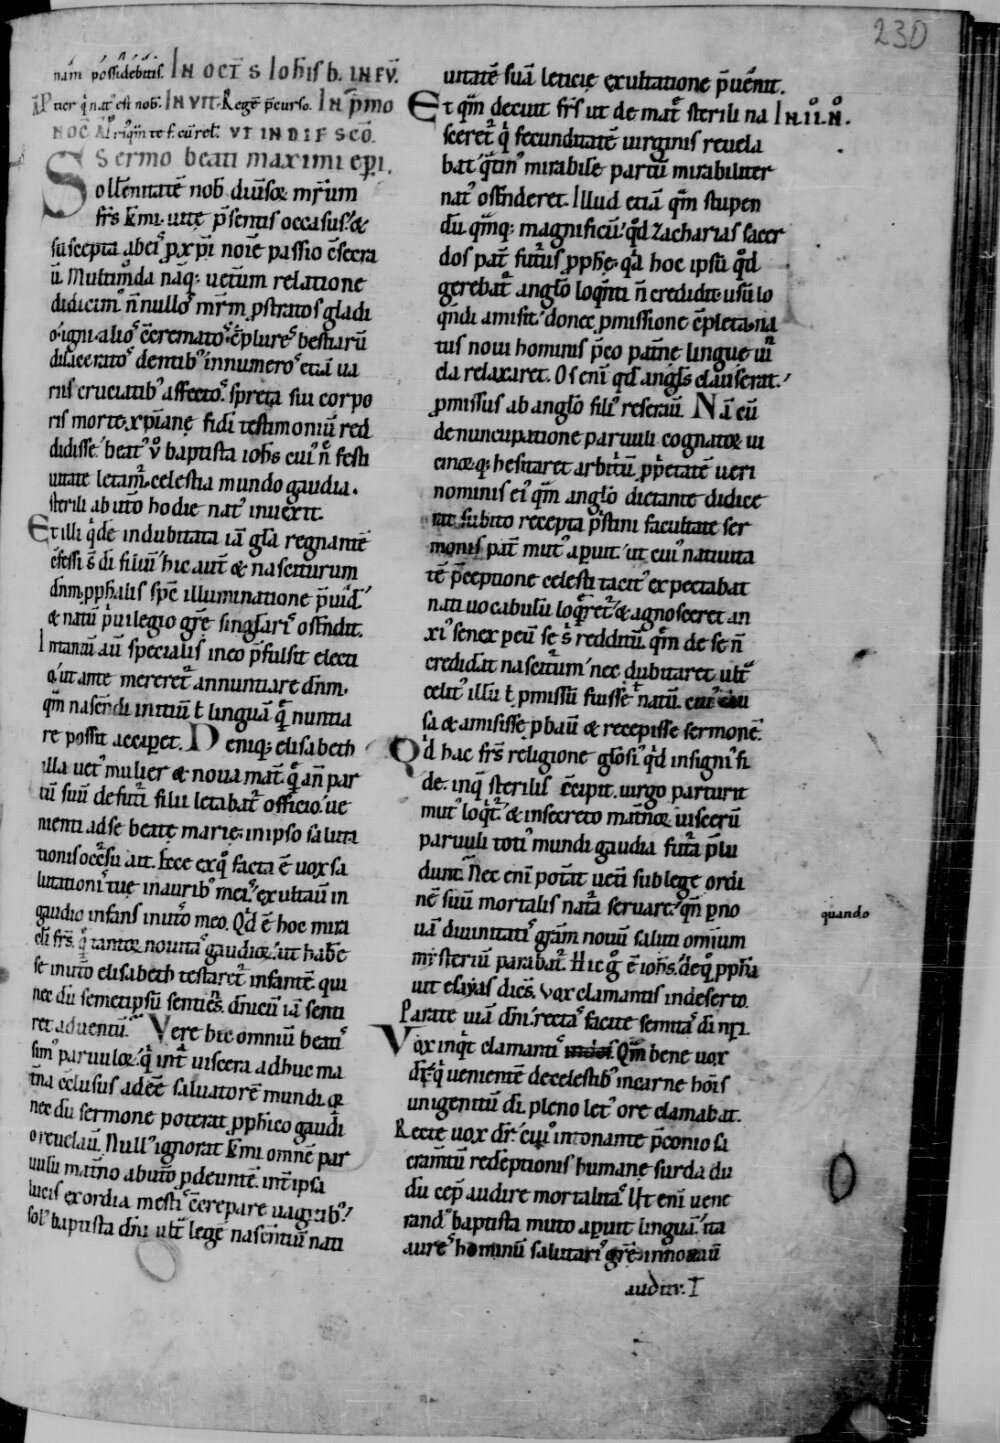 230
nam possidebitis. IN OCT̄ S IOHIS b. IN EV̄.
Puer q̇ nat᷒ est nob. IN VIT. Regē p̄curso. IN p̄mo
NOC̄
Sermo beati maximi ep̄i.
Soll̄enitatē nob̄ diu̇isoꝝ mr̄ꝝum
fr̄s k̄mi. uitę p̄sentis occasus. &
suscepta ab eis p xp̄i noīe passio c̄secra
ū. Multimoda nāq; uet̄um relatione
didicim᷒ n̄nullos mr̄m pstratos gladi
o. igni alios c̄crematos. c̄plures bestiarū
dilaceratos dentib᷒ innumeros etiā ua
riis cruciatib᷒ affectos. spreta sui corpo
ris morte. xp̄ianę fidi testimoniū red
didisse. beat᷒ ū baptista ioh̄s cui᷒ n̄ festi
uitate letam̄. celestia mundo gaudia.
sterili ab ut̄o hodie nat᷒ inuexit.
Et illi q̇de indubitata iā gl̄a regnantē
c̄fessi s̄ di filiū. hic aut̄ & nasciturum
dn̄m. pph̄alis sp̄c illuminatione p̄uid.
& natū p̄uilegio gr̄ę singlari᷒ ostndit.
Intantū aū specialis in eo p̄fulsit electi
o. ut ante mereret̄ annuntiare dn̄m.
qm̄ nascendi initiū t̄ linguā q̄ nuntia
re possit acciperet. Deniq; elisabeth
illa uet᷒ mulier & noua mat̄. q̄ an̄ par
tū suū de futuri filii letabat̄ officio. ue
nienti ad se beatę marię. in ipso saluta
tionis occ̄su ait. Ecce ex q̇ facta ē uox sa
lutationis tuę in aurib᷒ meis. exultauit in
gaudio infans in ut̄o meo. Qd̄ ē hoc mira
cli fr̄s. q̄ tantoꝝ nouitas gaudioꝝ. ut habē
se in ut̄o elisabeth testaret̄ infantē. qui
nec dū semetipsū sentiēs. dn̄icū iā senti
ret aduentū. Vere hic omniū beatis
sim᷒ paruuloꝝ. q̇ int̄ uiscera adhuc ma
t̄na c̄clusus adēe saluatorē mundi. q̄
nec dū sermone poterat. pph̄ico gaudi
o reuelaū. Null᷒ ignorat k̄mi. omnē par
uulū mat̄no ab ut̄o p̄deuntē. int̄ ipsa
lucis exordia mestis c̄crepare uagitib᷒.
sol᷒ baptista dn̄i ult̄ legē nascentiū nati
uitatē suā leticię exultatione p̄uenit.
Et qm̄ decuit fr̄s ut de mat̄ sterili na IN .II. N̊.
sceret̄ q̇ fecunditatē uirginis reuela
bat. q̄tin᷒ mirabile partū mirabiliter
nat᷒ ostnderet. Illud etiā qm̄ stupen
dū qmq; magnificū. qd̄ Zacharias sacer
dos pat̄ futurus pph̄ę. qa hoc ipsū qd̄
gerebat̄ anglo loqnti n̄ credidit. usū lo
qndi amisit. donec pmissione c̄pleta na
tus noui hominis p̄co patnę linguę uin
cla relaxaret. Os eni qd̄ angls clauserat.
pmissus ab anglo fili᷒ reseraū. Nā cū
de nuncupatione paruuli cognatoꝝ ui
cinoꝝq; hesitaret arbitriū. pprietatē ueri
nominis ei᷒ qm̄ anglo dictante didice
rat. subito recepta p̄stini facultate ser
monis pat̄ mut᷒ apuit. ut cui᷒ natiuita
tē p̄ceptione celesti tacit᷒ expectabat
nati uocabulū loqueret̄. & agnosceret an
xi᷒ senex petiū se s̄ redditū. qm̄ de se n̄
crediderat nasciturum. nec dubitaret ult̄
celit᷒ illū t̄ pmissū fuisse t̄ natū. cui᷒ cau
sa & amisisse pbaū & recepisse sermonē.
Qd̄ hac fr̄s religione glosi᷒ qd̄ insigni᷒ fi
de. inq̄ sterilis c̄cipit. uirgo parturit
mut᷒ loqt̄. & in secreto mat̄noꝝ uiscerū
paruuli toti᷒ mundi gaudia futura p̄lu
dunt. Nec eni pot̄at ueti sub lege ordi
nē suū mortalis natura seruare. qn̄ p no
uā diuinitatis gr̄am nouū saluti omium
mr̄steriū parabat̄. Hic ḡ ē ioh̄s. de q̇ pph̄a
uit esayas dicēs. Vox clamantis in deserto.
Parate uiā dn̄i. rectas facite semitas di nr̄i.
Vox inq̇t clamantis Qm̄ bene uox
dr̄. q̇ uenientē de celestib᷒ in carne hois
unigenitū di. pleno let᷒ ore clamabat.
Recte uox dr̄. cui᷒ intonante p̄conio sa
cramtū redēptionis humanę surda du
dū cep̄ audire mortalitas. Ut eni uene
rand᷒ baptista muto apuit linguā. ita
aures hominū salutaris gr̄ę innouaū
auditu. I
quando